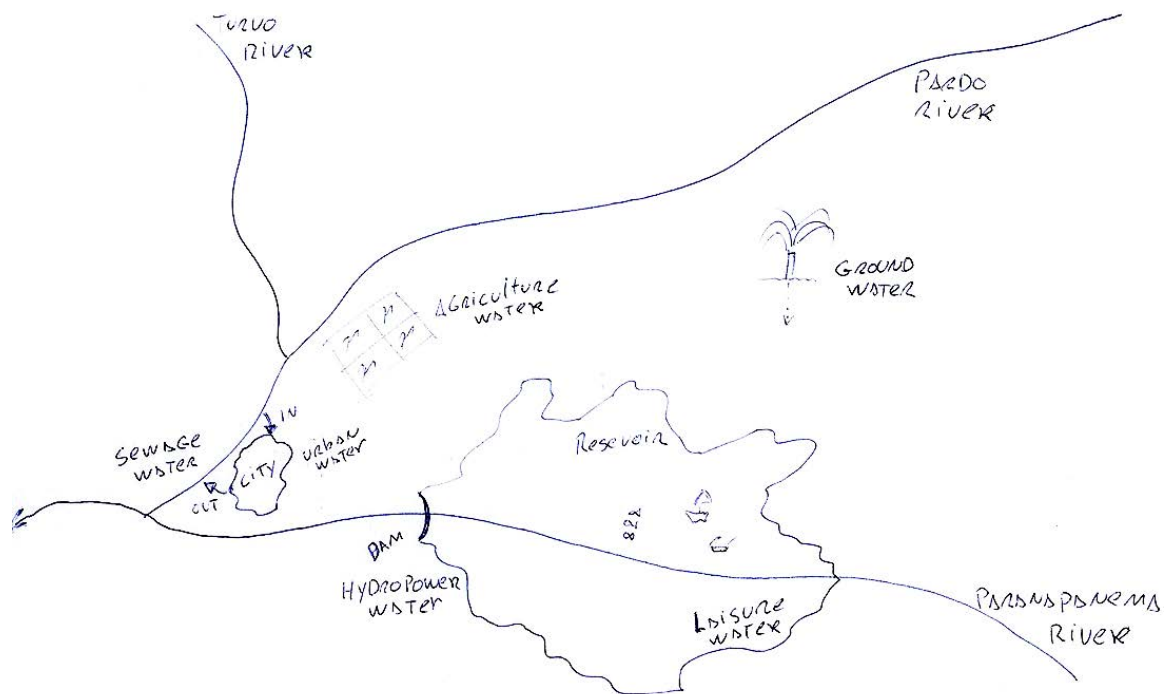 TURVO
RIVER
PARDO
RIVER
GROUND
WATER
AGRICULTURE
WATER
IN
URBAN
WATER
SEWAGE
WATER
CITY
OUT
Resevoir
DAM
HYDROPOWER
WATER
LAISURE
WATER
PARANAPANEMA
RIVER